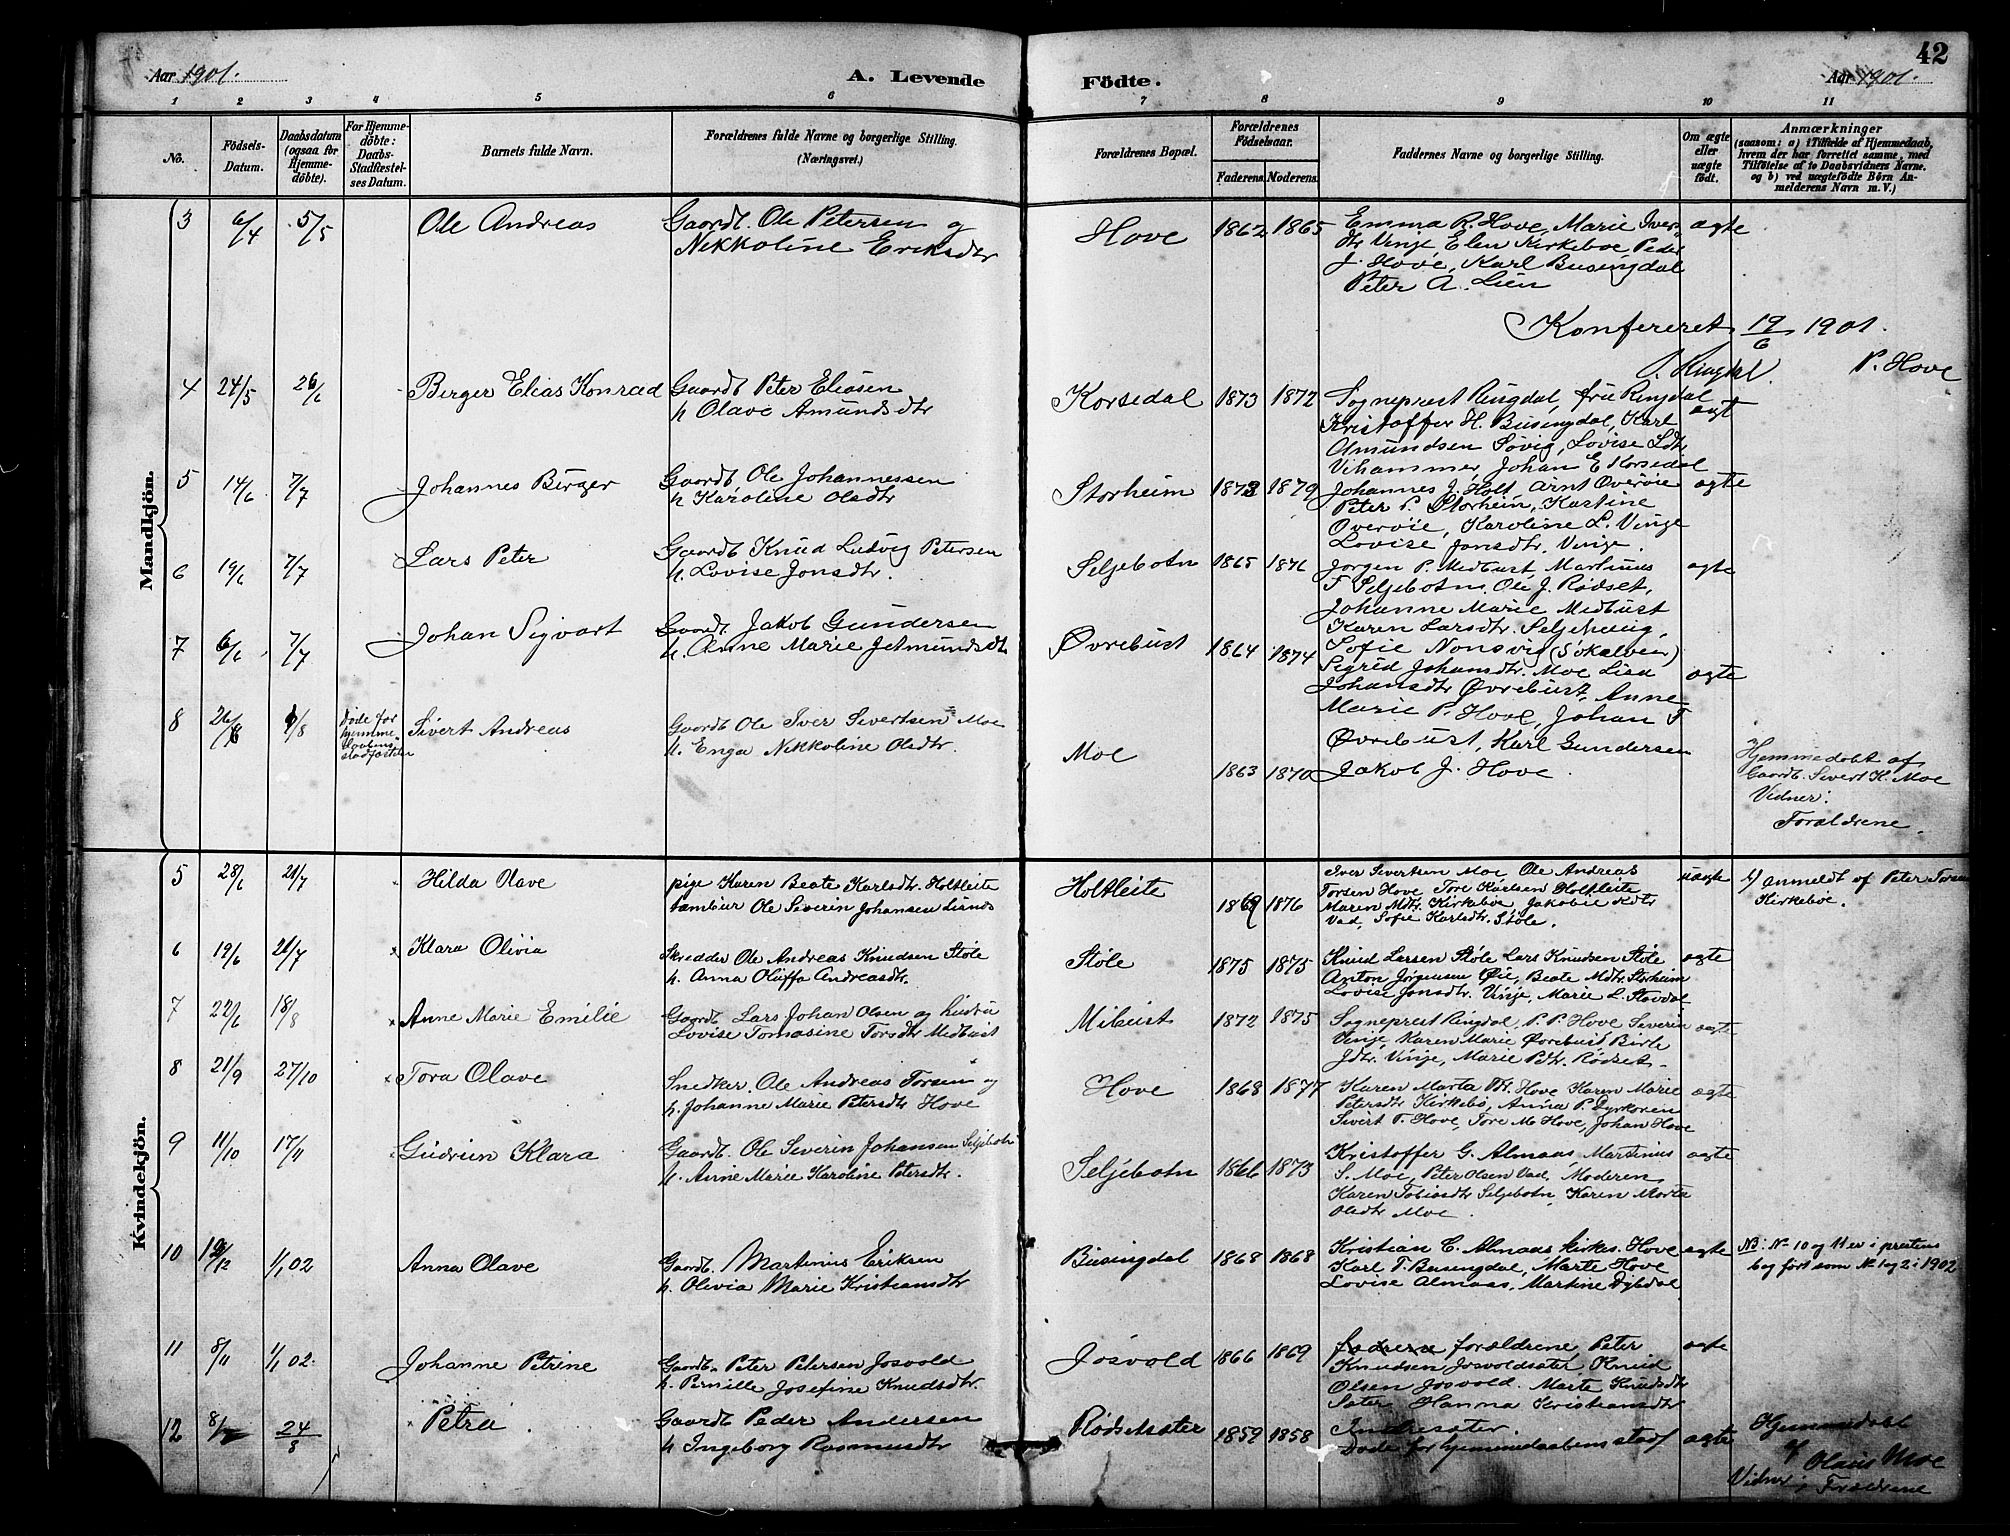 42
Aar 1901.
A. Levende Födte.
Aar 1901.
1 2 3 4 5 6 7 8 9 10 11
No.
Födsels-Datum.
Daabsdatum (ogsaa for Hjemme-döbte).
For Hjemme-döbte: Daabs-Stadfæstel-ses Datum.
Barnets fulde Navn.
Forældrenes fulde Navne og borgerlige Stilling. (Næringsvei.)
Forældrenes Bopæl.
Forældrenes Födselsaar.
Faderens Moderens
Faddernes Navne og borgerlige Stilling.
Om ægte eller uægte födt.
Anmærkninger
(saasom: a) i Tilfælde af Hjemmedaab,
hvem der har forrettet samme, med
Tilföielse af to Daabsvidners Navne.
og b) ved uægtefödte Börn An-
melderens Navn m. V.)
Mandkjön.
3 6/4 5/5 Ole Andreas
Gaardb. Ole Petersen og
Nikkoline Eriksdtr
Hove 1862 1865
Emma R. Hove, Marie Iver-
dtr Vinje Elen Kirkeboe Peder
J. Hove, Karl Busingdal
Peter A. Lien
ægte
Konfereret 19/6 1901.
J. Ringdal. P. Hove
4 24/5 26/6 Berger Elias Konrad
Gaardb Peter Eliasen
h Olave Amundsdtr
Korsedal 1873 1872
Sogneprest Ringdal, fru Ringdal
Kristoffer H. Busingdal, Karl
Amundsen Søvig, Lovise Ldtr
Vihammer, Johan E Korsedal
ægt
5 14/6 7/7 Johannes Birger
Gaardb Ole Johannessen
h Karoline Olsdtr
Storheim 1873 1879
Johannes J. Holt, Arnt Overøie
Peter P. Storheim, Kartine
Overøie, Karoline L. Vinje
Lovise Jonsdtr. Vinje.
ægte
6 19/6 7/7 Lars Peter
Gaardb Knud Ludvig Petersen
h. Lovise Jonsdtr.
Seljebotn 1865 1876
Jørgen P. Medbust, Martinus
T Seljebotn. Ole J. Rødset,
Johanne Marie Medbust
Karen Larsdtr. Seljehaug,
ægte
7 6/6 7/7 Johan Sigvart
Gaardb. Jakob Gundersen
h. Anne Marie Jetmundsdtr
Øvrebust 1864 1874
Sofie Nonsvig (Søkelven)
Sigrid Johansdtr. Moe Lisa
Johansdtr Øvrebust, Anne
Marie P. Hove, Johan T
Øvrebust, Karl Gundersen
Jakob J. Hove.
ægte
8 26/6 1/8 Døde før hjemmedaabens stadfæstelse
Sivert Andreas
Gaardb Ole Iver Sivertsen Moe
h. Enga Nikkoline Olsdtr.
Moe 1863 1870
Hjemmedøbt af
Gaardb. Sivert K. Moe
Vidner:
Forældrene.
Kvindekjön.
5 28/6 21/7 Hilda Olave
pige Karen Beate Karlsdtr. Holtleite
Tambur Ole Severin Johansen Lianes
Holtleite 1869 1876
Iver Sivertsen Moe, Ole Andreas
Torsen Hove, Tore Karlsen Holtleite
Maren Mdtr. Kirkeboe, Jakobie Kdtr
Vad, Sofie Karlsdtr. Støle.
uægte
b) anmeldt af Peter Torsen
Kirkeboe.
6 19/6 21/7 Klara Olivia
Skredder Ole Andreas Knudsen Støle
h. Anna Oluffa Andreasdtr.
Støle 1875 1875
Knud Larsen Støle Lars Knudsen Støle
Anton Jørgensen Øie, Beate Mdtr. Storheim
Lovise Jonsdtr. Vinje, Marie L. Stavdal
ægte
7 22/6 18/8 Anne Marie Emilie
Gaardb. Lars Johan Olsen og hustru
Lovise Tomasine Torsdtr Medbust
Mibust 1872 1875
Sogneprest Ringdal, P. P. Hove Severin
Vinje, Karen Marie Øvrebust Birte
Jdtr. Vinje, Marie Pdtr. Rødset.
ægte
8 21/9 27/10 Tora Olave
Snedker Ole Andreas Torsen og
h. Johanne Marie Petersdtr Hove
Hove 1868 1877
Karen Marta Hove Karen Marie
Petersdtr Kirkebø, Anna P. Dyrkoren
Sivert T. Hove, Tore M Hove, Johan Hove
ægte
9 11/10 17/11 Gudrun Klara
Gaardb. Ole Severin Johansen Seljebotn
h. Anne Marie Karoline Petersdtr.
Seljebotn 1866 1873
Kristoffer G. Almaas Martinus
S. Moe, Peter Olsen Vad, Moderen
Karen Tobiasdtr Seljebotn, Karen Marta
Olsdtr Moe.
ægte
10 /12 1/1 02 Anna Olave
Gaardb. Martinus Eriksen
h. Olivia Marie Kristiansdtr
Busingdal 1868 1868
Kristian C. Almaas Hove
Karl T. Busingdal, Marte Hove
Lovise Almaas, Martine Dybdal
ægte
NB: No 10 og 11 er i prestens
bog ført som No 1 og 2 i 1902
11 8/11 1/1 02. Johanne Petrine
Gaardb. Peter Petersen Josvold
h. Pernille Josefine Knudsdtr.
Josvold 1866 1869
forældrene, Peter
Knudsen Josvoldsæter Knud
Olsen Josvold. Marte Knudsdtr
Sæter, Hanna Kristiansdtr
Indresæter.
ægte
12 8/ 24/3 Petra
Gaardb Peder Andersen
h Ingeborg Rasmusdtr
Rødsetsæter 1859 1858
Døde før hjemmedaabens stadf
ægte
Hjemmedøbt
af Olaus Moe
Vidner: Forældrene